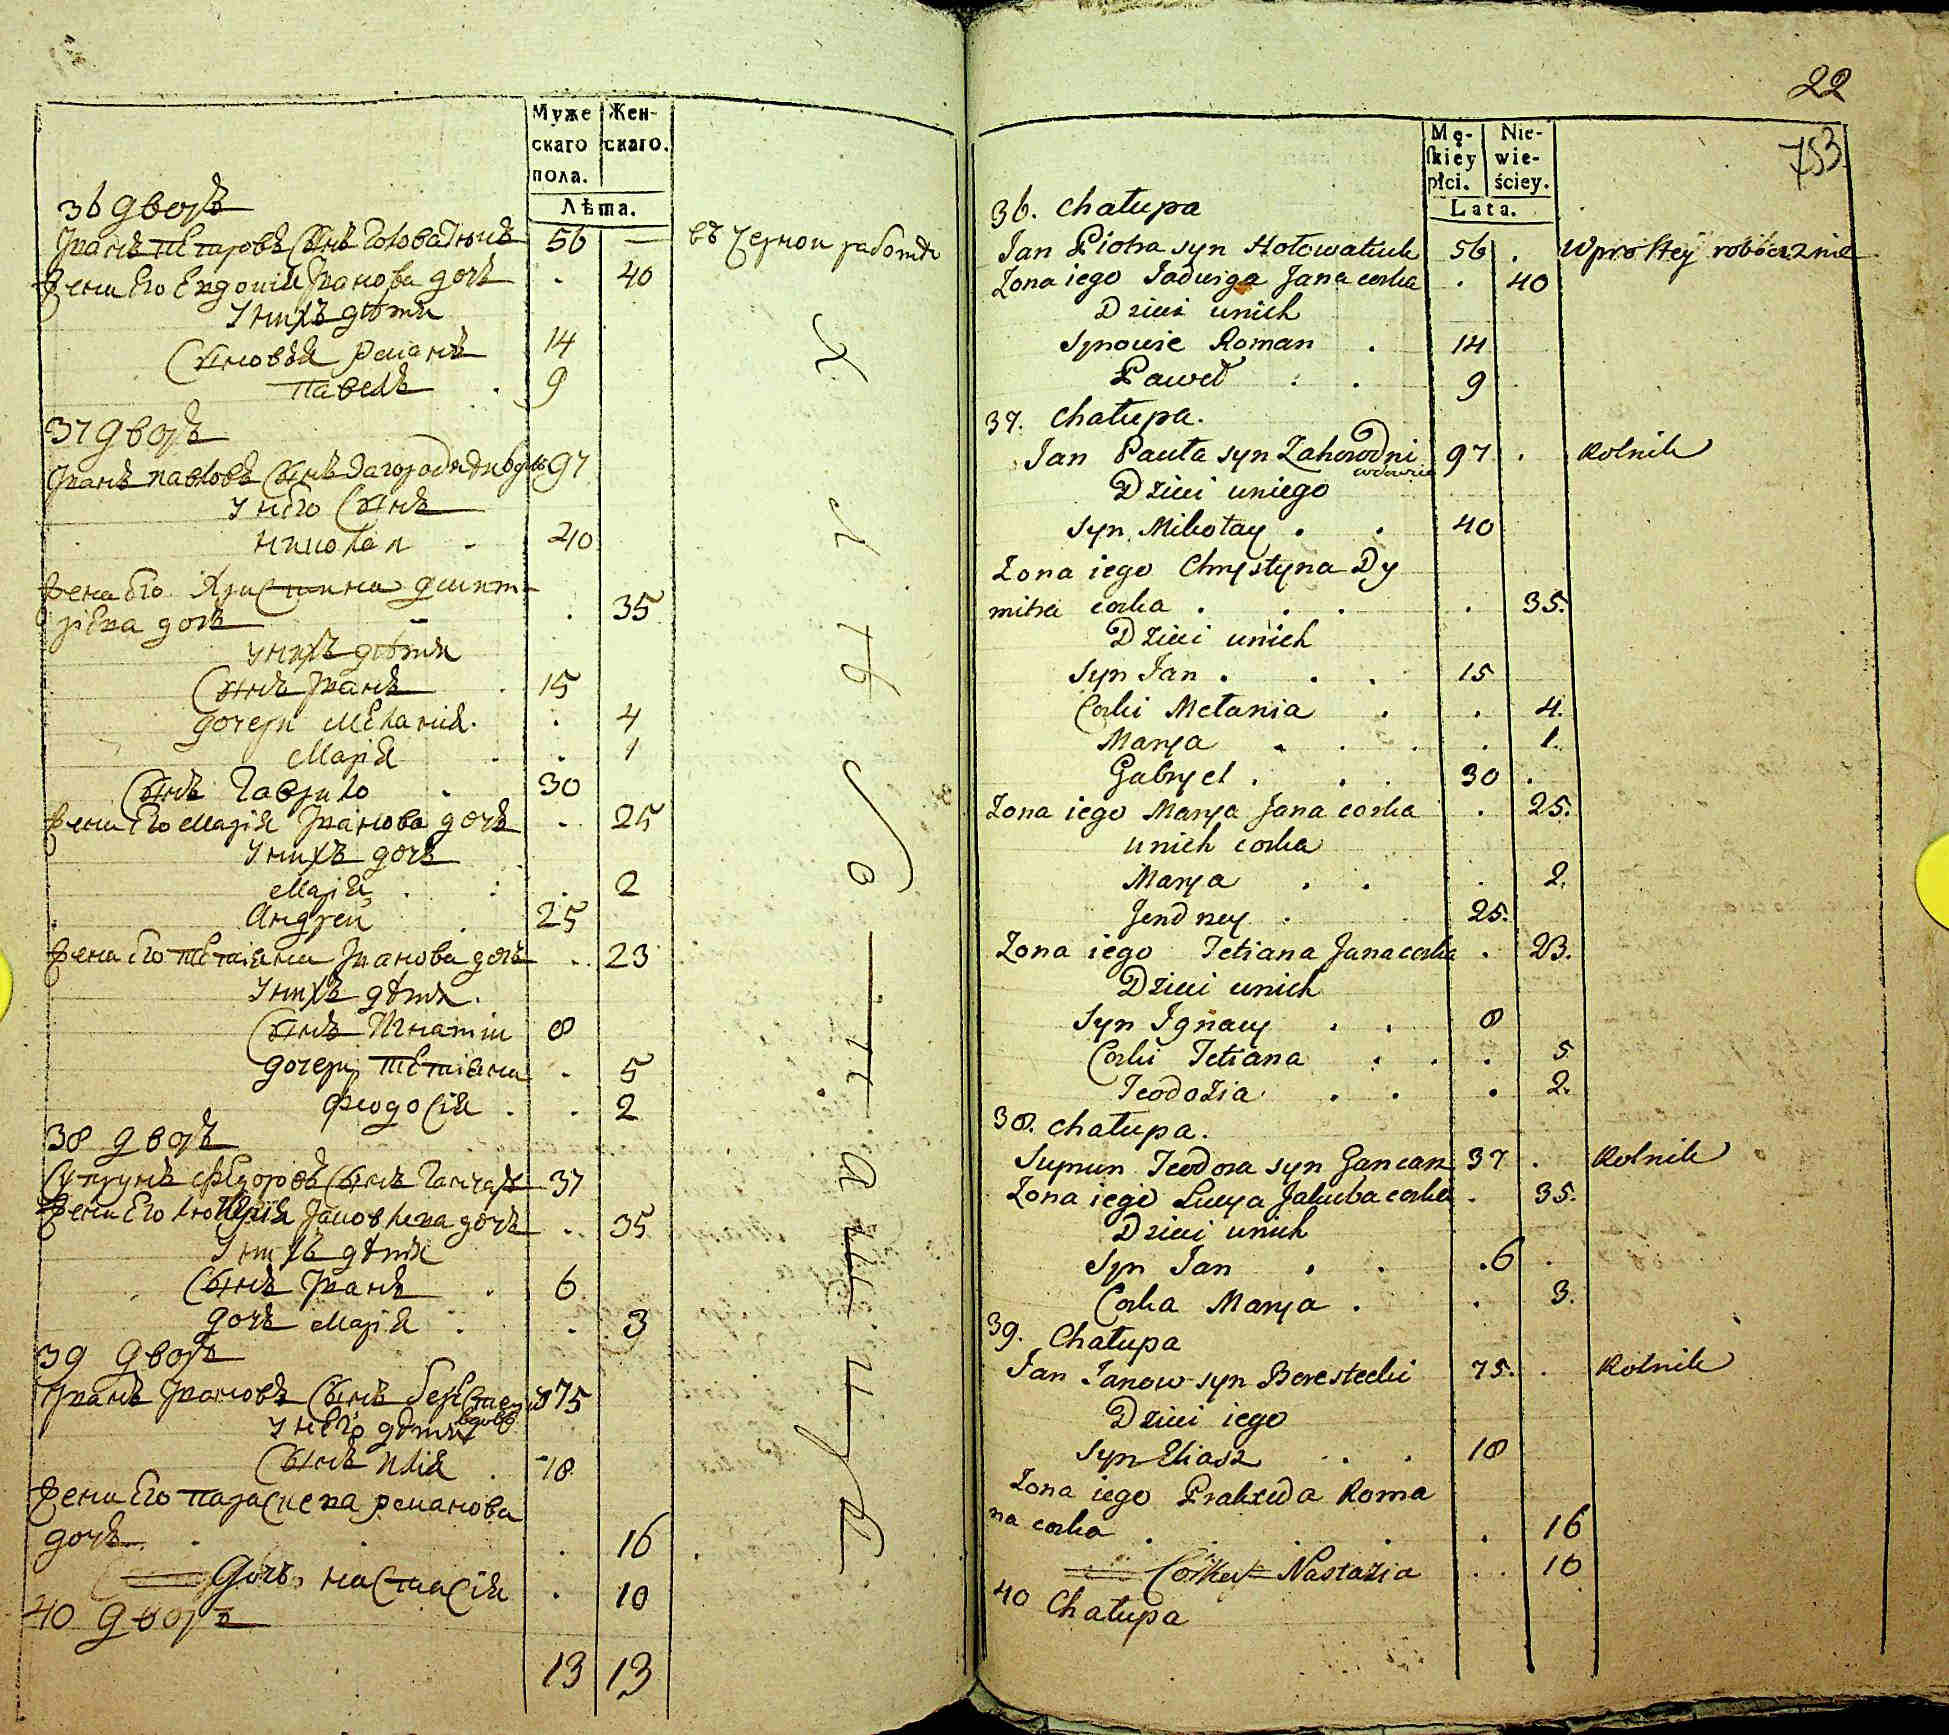 Муже
скаго
пола.
Жен-
скаго.
Лѣта.
36 дворъ
Иванъ Петровъ сынъ Головатюкъ 56 — въ черной работѣ
Жена его Евдокия Иванова дочь . 40
У нихъ дѣти
Сыновья Романъ 14
Павелъ . 9
37 дворъ
Иванъ Павловъ сынъ Загородни 97
У него сынъ
Николай - 40
Жена его Христина Дмит-
рієва дочь . 35
У нихъ дѣти
Сынъ Иванъ . 15
дочери Меланія . . 4
Марія . . 1
Сынъ Гаврило . 30
Жена его Марія Иванова дочь . 25
У нихъ дочь
Марія . : . 2
Андрей . 25
Жена его Тетіяна Иванова дочь . 23
У нихъ дѣти .
Сынъ Игнатій 8
дочери Тетіяна . 5
Феодосія . . 2
38 дворъ
Супрунъ Федоровъ сынъ Ганчаръ 37
Жена его Яковлева дочь . 35
У нихъ дѣти
Сынъ Иванъ . 6
дочь Марія . . 3
39 дворъ
Иванъ Ивановъ сынъ 75
вдовъ
У него дѣти
Сынъ Илія . 18
Жена его Параскева Романова
дочь . . . 16
Дочь Настасія . 10
40 дворъ
13 13
22
753
Mę-
ſkiéy
płci.
Nie-
wie-
ściey.
Lata.
36. Chałupa
Jan Piotra syn Hołowatiuk 56 . W prostey robociznie
Zona iego Jadwiga Jana corka . 40
Dzieci unich
Synowie Roman . 14
Paweł . . 9
37. Chałupa.
Jan Pauła syn Zahorodni 97 . Rolnik
wdowiec
Dzieci uniego
Syn Mikołay . . 40
Zona iego Chrystyna Dy
mitra corka . . . . . 35.
Dzieci unich
Syn Jan . . . 15
Corki Mełania . . 4.
Marya . . . . 1.
Gabryel . . . 30 .
Zona iego Marya Jana corka . 25.
unich corka
Marya . . . 2.
Jendrzey . 25.
Zona iego Tetiana Jana corka . 23.
Dzieci unich
Syn Ignacy . . 8
Corki Tetiana . . . 5
Teodozia . . . 2.
38. Chałupa.
Suprun Teodora syn Gancarz 37 . Rolnik
Zona iego Łucya Jakuba corka . 35.
Dzieci unich
Syn Jan . . .6 .
Corka Marya . . 3.
39. Chałupa
Jan Janow syn Berestecki 75. . Rolnik
Dzieci iego
Syn Eliasz . . 18
Zona iego Praxeda Roma
na corka . . . . 16
Corka Nastazia . . 10
40 Chałupa